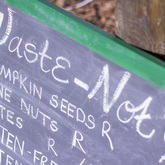 Waste-Not
PUMPKIN SEEDS R
NUTS R
TES R
TEN-FREE